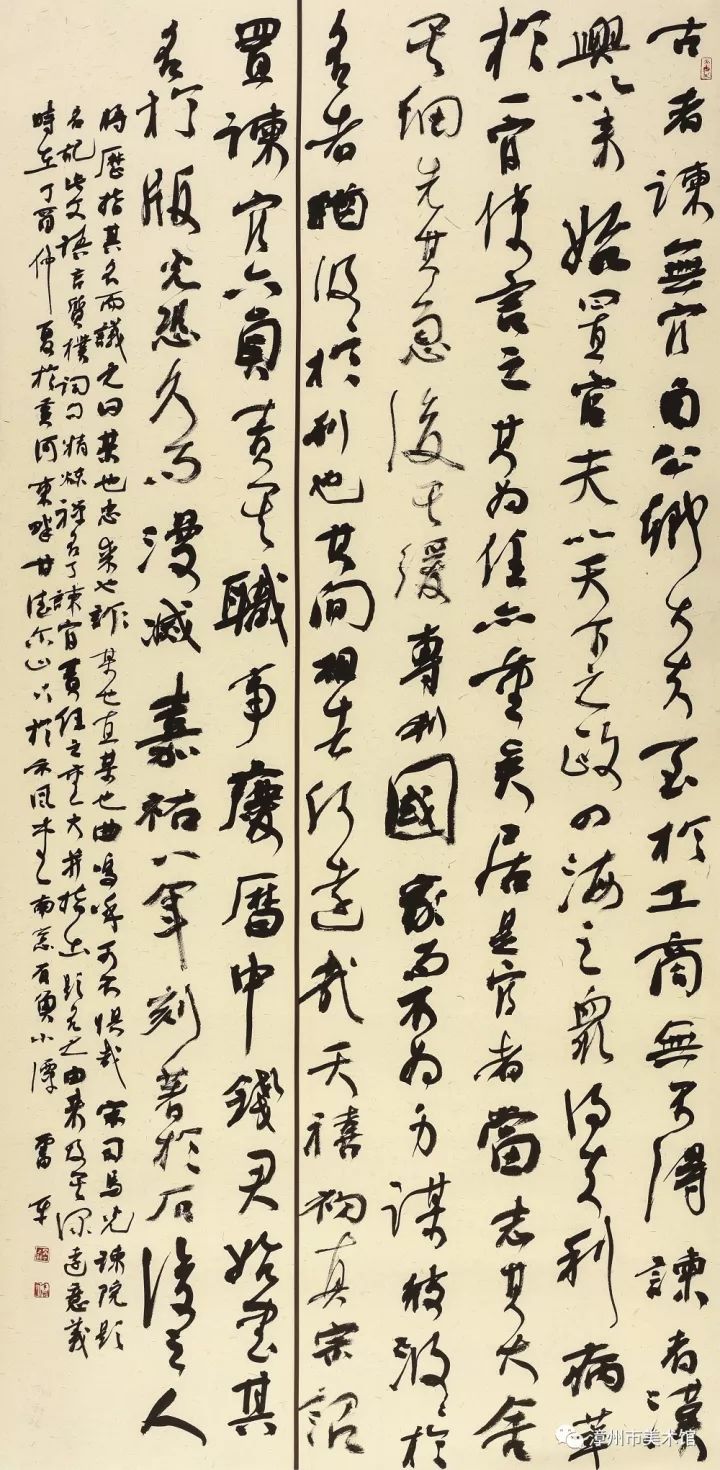 古者諫無官自公卿大夫至於工商無不得諫者漢
興以來始置官夫以天下之政四海之衆得失利病萃
於一官使言之其為任亦重矣居是官者當志其大舍
其細先其急後其緩專利國家而不為身謀彼汲汲於
名者猶汲於利也其間相去何遠哉天禧初真宗詔
置諫官六員責其職事慶曆中錢君始書其
名於版光恐久而漫滅嘉祐八年刻著於石後之人
將歷指其名而議之曰某也忠某也詐某也直某也曲嗚呼可不懼哉 宋司馬光諫院題
名記此文語言質樸詞句精煉諫官責任之重大并指出題名之由來及其深遠意義
時在丁酉仲夏於黃河東畔甘德尔山下於木風南窓有魚小潭 雷
漳州市美术馆